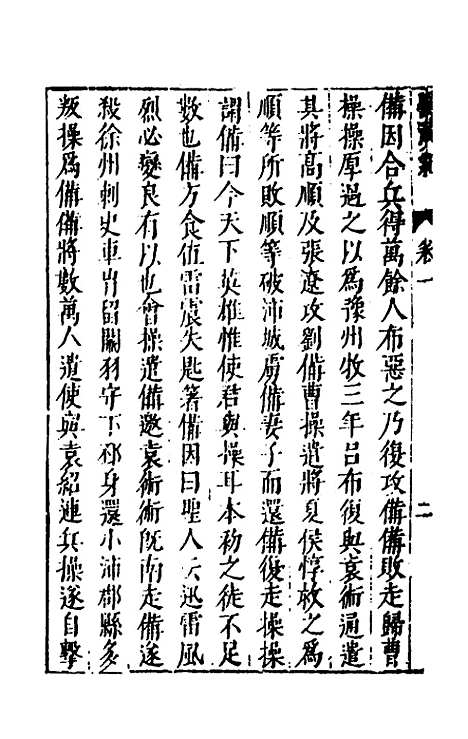 備因合兵得萬餘人布惡之乃復攻備備敗走歸曹
操操厚遇之以為豫州牧三年呂布復與袁術通遣
其將高順及張遼攻劉備曹操遣將夏侯惇救之為
順等所敗順等破沛城虜備妻子而還備復走操操
謂備曰今天下英雄惟使君與操耳本初之徒不足
數也備方食值雷震失匙箸備因曰聖人云迅雷風
烈必變良有以也會操遣備邀袁術術既南走備遂
殺徐州刺史車冑留關羽守下邳身還小沛郡縣多
叛操為備備將數萬人遣使與袁紹連兵操遂自擊
卷一
二